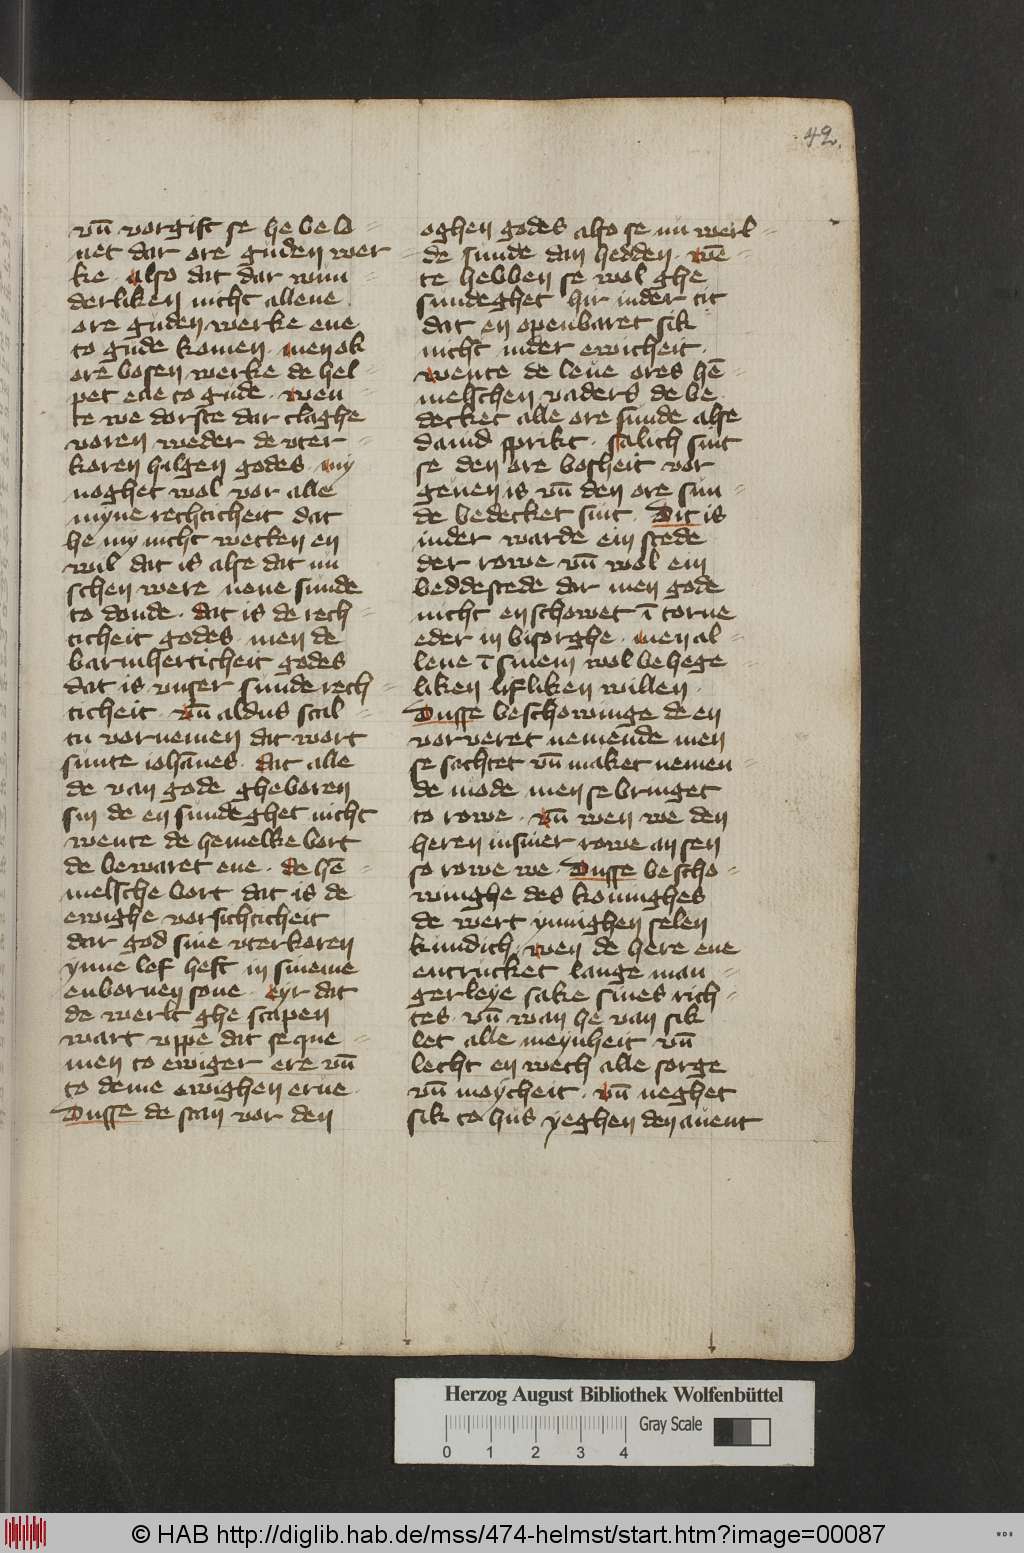 42.
vn̄ vorgift se he belo=
net dar ore guden wer=
ke. Also dat dar wun
derliken nicht allene
ore guden werke ene
to gude komen. men ok
ore bosen werke de hel=
pet ene to gude. wen=
te we dorste dar claghe
voren weder de vter=
koren hilgen godes. my
noghet wol vor alle
myne rechticheit dat
he my nicht wecken en
wil dat is alse dat mi
schen were nene sunde
to donde. dat is de rech=
ticheit godes. men de
barmherticheit godes
dat is vnser sunde rech=
ticheit. vn̄ aldus scal=
tu vornemen dat wort
sunte iohānes. dat alle
de van gode gheboren
sin de en sundeghet nicht
wente de hemelke bort
de bewaret ene. de hē=
melsche bort dat is de
ewighe vorsichticheit
dar god sine vterkoren
ynne lef heft in sineme
enbornen sone. eyr dat
de werlt ghe scapen
wart vppe dat se que=
men to ewiger ere vn̄
to deme ewighen erue.
Dusse de stan vor den
oghen godes also se nu werl=
de sunde dan hedden. wē=
te hebben se wol ghe
sundeghet hir inder tit
dat en openbaret sik
nicht inder ewicheit.
wente de leue ores hē=
melschen vaders de be
decket alle ore sunde alse
dauid sprikt. salich sint
se den ore bosheit vor
geuen is vn̄ den ore sun=
de bedecket sint. Dit is
inder warde ein stede
der rowe vn̄ wol ein
beddestede dar men gode
nicht en schowet ī torne
eder in bisorghe. men al=
lene ī sinem wol behege=
liken lifliken willen.
Dusse beschowinge de en
vorveret nemende men
se sachtet vn̄ maket nemen=
de mode men se bringet
to rowe. vn̄ wen we den
heren in siner rowe an sen
so rowe we. Dusse bescho=
winghe des koninghes
de wert ynnighen selen
kundich. wen de here ene
entrucket lange man=
gerleye sake sines rich=
tes. vn̄ wan he van sik
let alle meynheit vn̄
lecht en wech alle sorge
vn̄ moycheit. vn̄ neghet
sik to hus yeghen den auent
Herzog August Bibliothek Wolfenbüttel
Gray Scale
0 1 2 3 4
© HAB http://diglib.hab.de/mss/474-helmst/start.htm?image=00087